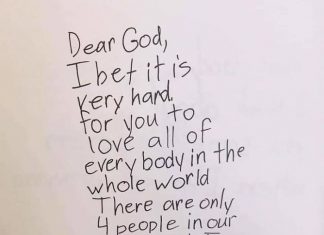 Dear God,
I bet it is
very hard
for you to
love all of
every body in the
whole world
There are only
4 people in our